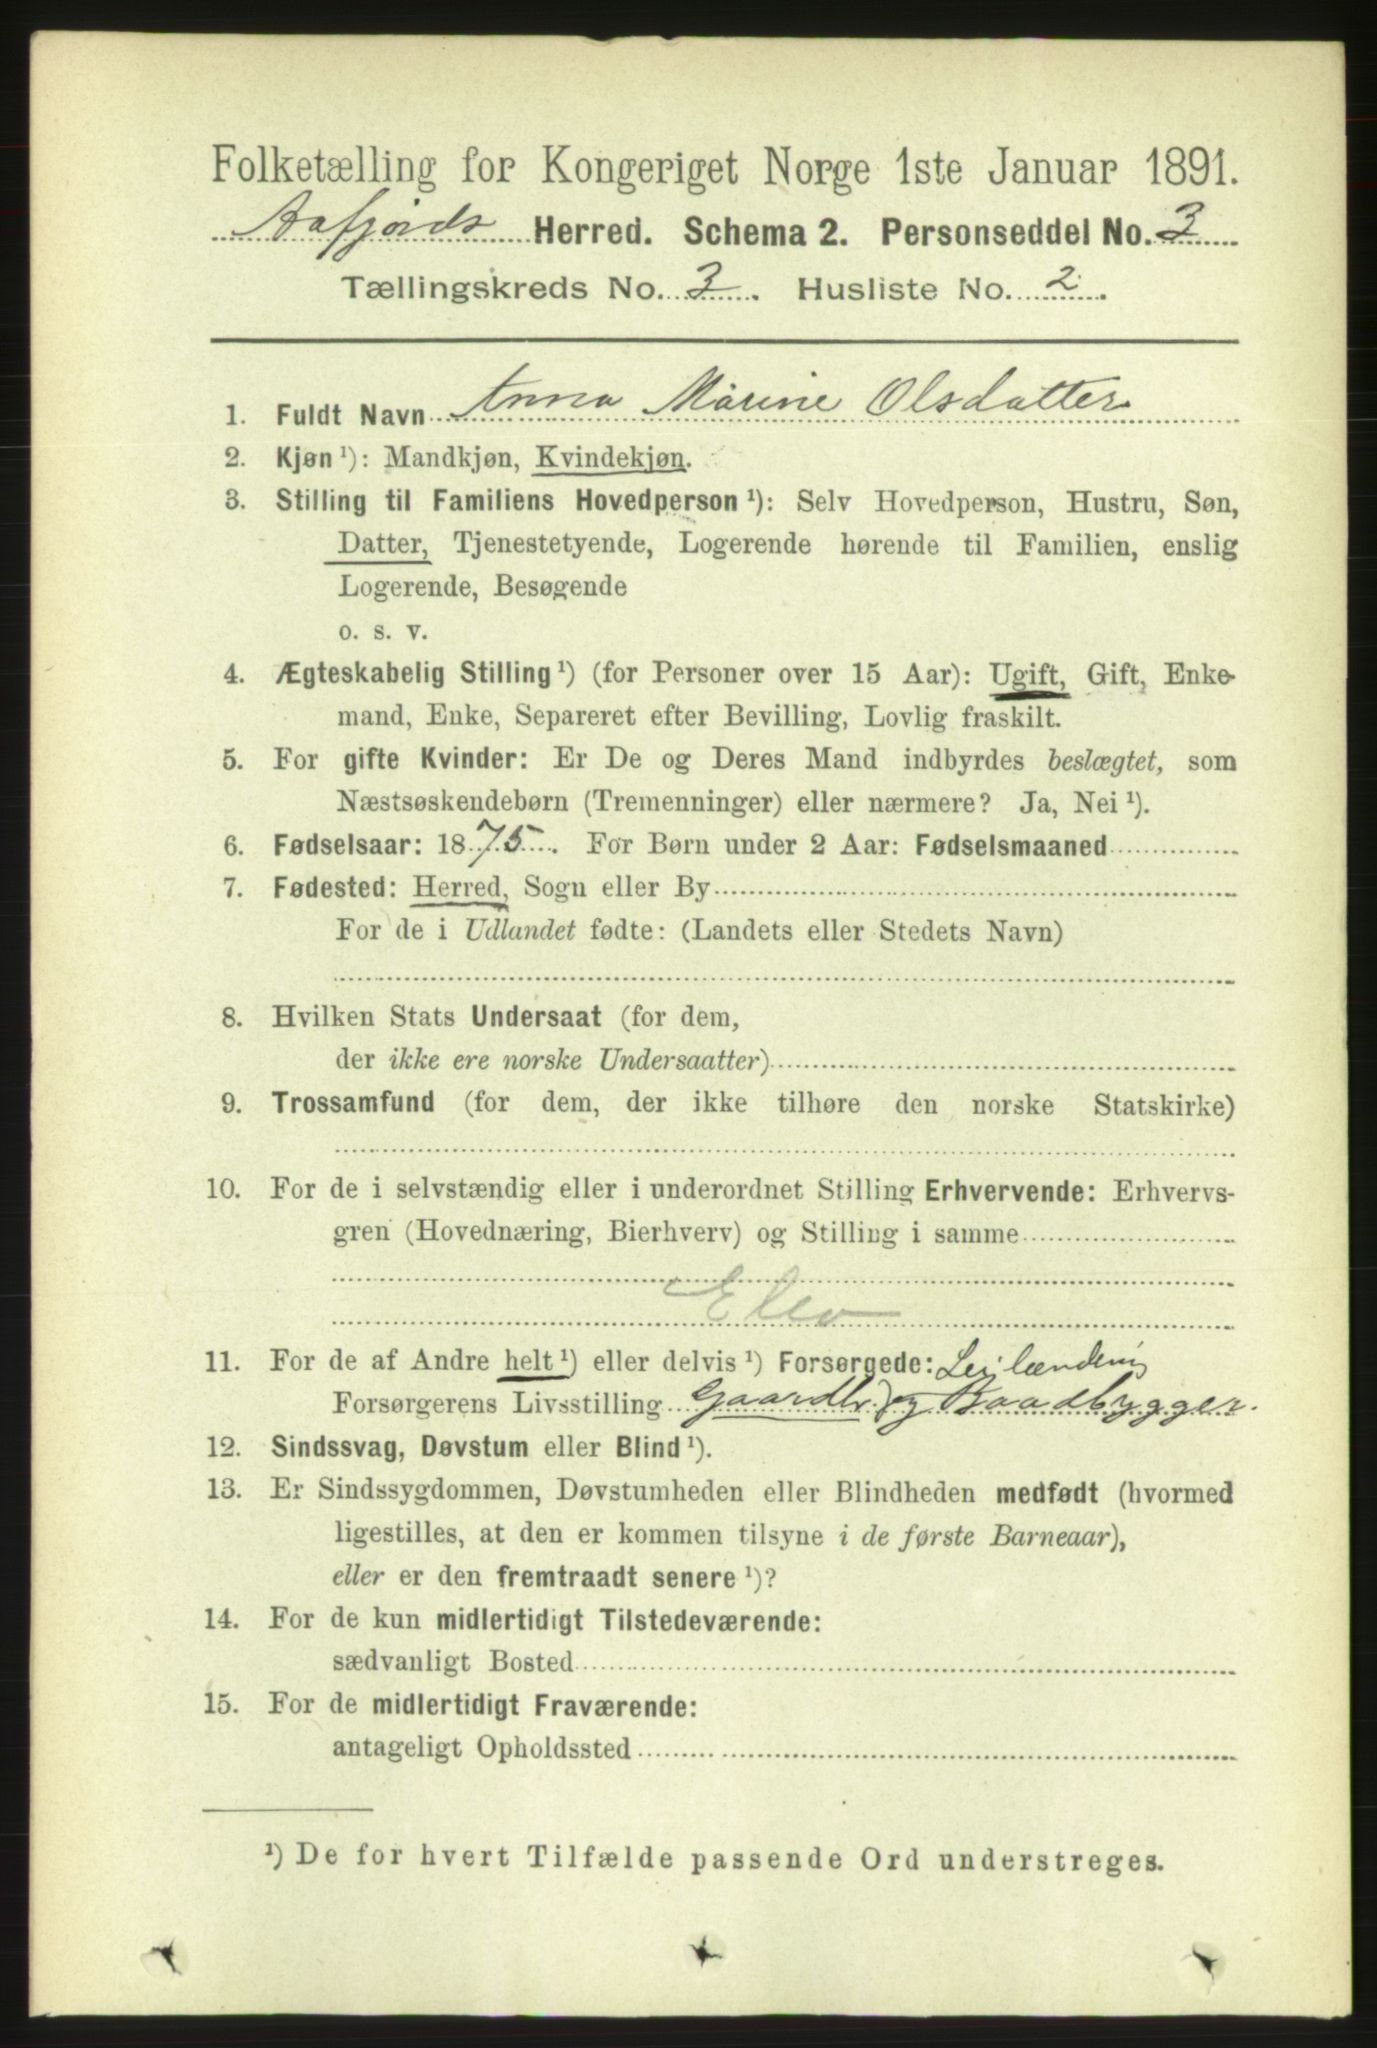 Folketælling for Kongeriget Norge 1ste Januar 1891.
Aafjords Herred. Schema 2. Personseddel No. 3
Tællingskreds No. 3. Husliste No. 2.
1. Fuldt Navn Anna Marine Olsdatter
2. Kjøn ¹): Mandkjøn, Kvindekjøn.
3. Stilling til Familiens Hovedperson ¹): Selv Hovedperson, Hustru, Søn,
Datter, Tjenestetyende, Logerende hørende til Familien, enslig
Logerende, Besøgende
o. s. v.
4. Ægteskabelig Stilling ¹) (for Personer over 15 Aar): Ugift, Gift, Enke-
mand, Enke, Separeret efter Bevilling, Lovlig fraskilt.
5. For gifte Kvinder: Er De og Deres Mand indbyrdes beslægtet, som
Næstsøskendebørn (Tremenninger) eller nærmere? Ja, Nei ¹).
6. Fødselsaar: 1875. For Børn under 2 Aar: Fødselsmaaned
7. Fødested: Herred, Sogn eller By
For de i Udlandet fødte: (Landets eller Stedets Navn)
8. Hvilken Stats Undersaat (for dem,
der ikke ere norske Undersaatter)
9. Trossamfund (for dem, der ikke tilhøre den norske Statskirke)
10. For de i selvstændig eller i underordnet Stilling Erhvervende: Erhvervs-
gren (Hovednæring, Bierhverv) og Stilling i samme
Elev
11. For de af Andre helt ¹) eller delvis ¹) Forsørgede: Leilænding
Forsørgerens Livsstilling Gaardbr) og Baadbygger.
12. Sindssvag, Døvstum eller Blind ¹).
13. Er Sindssygdommen, Døvstumheden eller Blindheden medfødt (hvormed
ligestilles, at den er kommen tilsyne i de første Barneaar),
eller er den fremtraadt senere ¹)?
14. For de kun midlertidigt Tilstedeværende:
sædvanligt Bosted
15. For de midlertidigt Fraværende:
antageligt Opholdssted
¹) De for hvert Tilfælde passende Ord understreges.